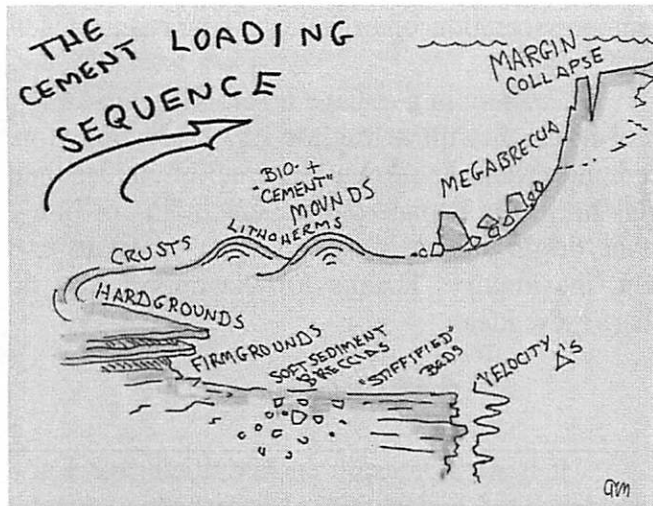 THE
CEMENT LOADING
SEQUENCE
MARGIN
COLLAPSE
MEGABRECCIA
BIO- +
"CEMENT"
MOUNDS
LITHOHERMS
CRUSTS
HARDGROUNDS
FIRMGROUNDS
SOFTSEDIMENT
BRECCIAS
"STIFFIFIED"
BEDS
VELOCITY Δ'S